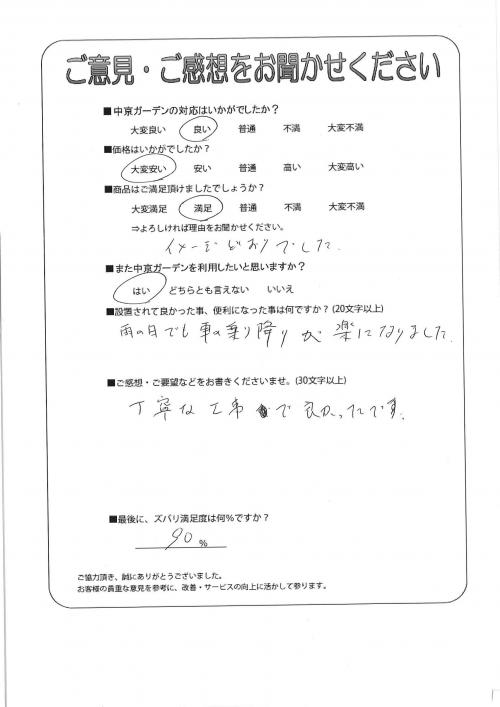 ご意見・ご感想をお聞かせください
■中京ガーデンの対応はいかがでしたか?
大変良い 良い 普通 不満 大変不満
■価格はいかがでしたか?
大変安い 安い 普通 高い 大変高い
■商品はご満足頂けましたでしょうか?
大変満足 満足 普通 不満 大変不満
⇒よろしければ理由をお聞かせください。
イメージどおりでした.
■また中京ガーデンを利用したいと思いますか?
はい どちらとも言えない いいえ
■設置されて良かった事、便利になった事は何ですか?(20文字以上)
雨の日でも車の乗り降りが楽になりました.
■ご感想・ご要望などをお書きくださいませ。(30文字以上)
丁寧な工事で良かったです.
■最後に、ズバリ満足度は何%ですか?
90 %
ご協力頂き、誠にありがとうございました。
お客様の貴重な意見を参考に、改善・サービスの向上に活かして参ります。